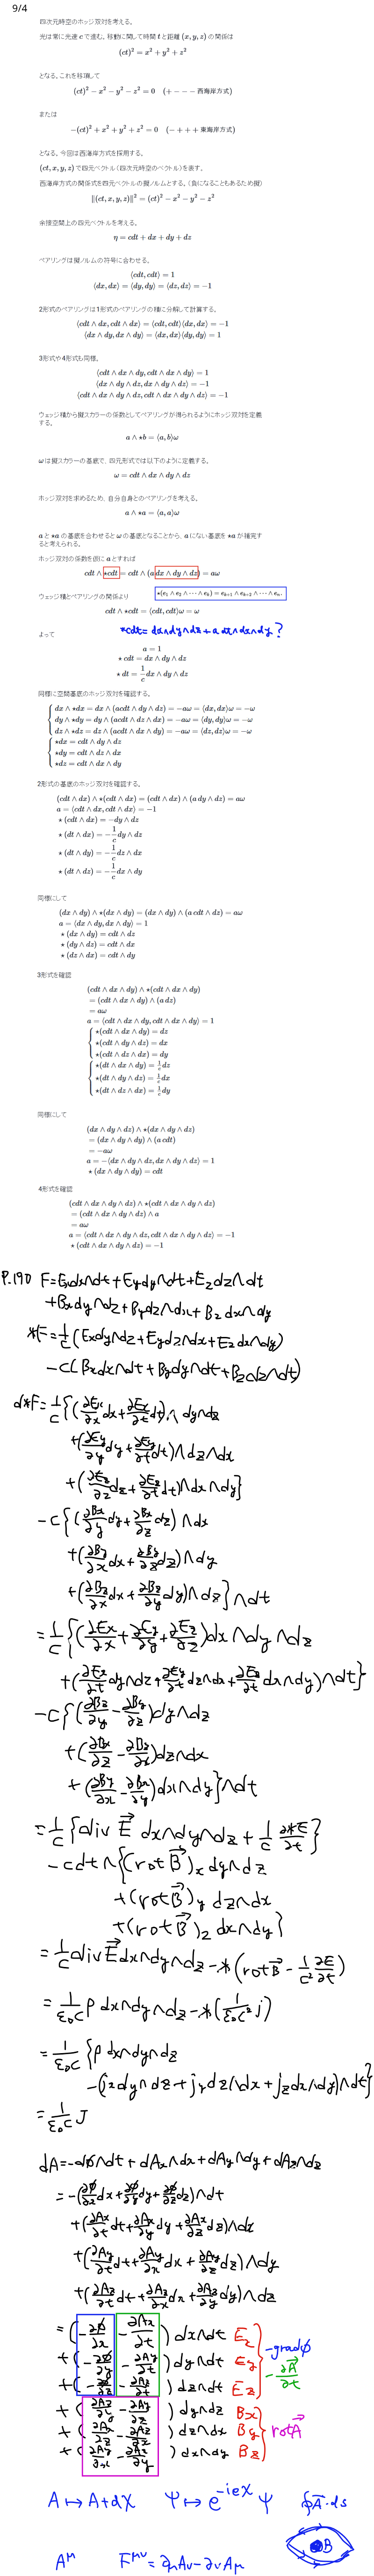 9/4
四次元時空のホッジ双対を考える。
光は常に光速 c で進む。移動に関して時間 t と距離 (x, y, z) の関係は
(ct)² = x² + y² + z²
となる。これを移項して
(ct)² − x² − y² − z² = 0 (+ − − − 西海岸方式)
または
−(ct)² + x² + y² + z² = 0 (− + + + 東海岸方式)
となる。今回は西海岸方式を採用する。
(ct, x, y, z) で四元ベクトル(四次元時空のベクトル)を表す。
西海岸方式の関係式を四元ベクトルの擬ノルムとする。(負になることもあるため擬)
‖(ct, x, y, z)‖² = (ct)² − x² − y² − z²
余接空間上の四元ベクトルを考える。
η = cdt + dx + dy + dz
ペアリングは擬ノルムの符号に合わせる。
⟨cdt, cdt⟩ = 1
⟨dx, dx⟩ = ⟨dy, dy⟩ = ⟨dz, dz⟩ = −1
2形式のペアリングは1形式のペアリングの積に分解して計算する。
⟨cdt ∧ dx, cdt ∧ dx⟩ = ⟨cdt, cdt⟩⟨dx, dx⟩ = −1
⟨dx ∧ dy, dx ∧ dy⟩ = ⟨dx, dx⟩⟨dy, dy⟩ = 1
3形式や4形式も同様。
⟨cdt ∧ dx ∧ dy, cdt ∧ dx ∧ dy⟩ = 1
⟨dx ∧ dy ∧ dz, dx ∧ dy ∧ dz⟩ = −1
⟨cdt ∧ dx ∧ dy ∧ dz, cdt ∧ dx ∧ dy ∧ dz⟩ = −1
ウェッジ積から擬スカラーの係数としてペアリングが得られるようにホッジ双対を定義
する。
a ∧ ⋆b = ⟨a, b⟩ω
ωは擬スカラーの基底で、四元形式では以下のように定義する。
ω = cdt ∧ dx ∧ dy ∧ dz
ホッジ双対を求めるため、自分自身とのペアリングを考える。
a ∧ ⋆a = ⟨a, a⟩ω
a と ⋆a の基底を合わせると ω の基底となることから、a にない基底を ⋆a が補完す
ると考えられる。
ホッジ双対の係数を仮に a とすれば
cdt ∧ ⋆cdt = cdt ∧ (a dx ∧ dy ∧ dz) = aω
ウェッジ積とペアリングの関係より ⋆(e₁ ∧ e₂ ∧ ⋯ ∧ eₖ) = eₖ₊₁ ∧ eₖ₊₂ ∧ ⋯ ∧ eₙ.
cdt ∧ ⋆cdt = ⟨cdt, cdt⟩ω = ω
よって *cdt = dx∧dy∧dz + a dt∧dx∧dy ?
a = 1
⋆cdt = dx ∧ dy ∧ dz
⋆dt = 1/c dx ∧ dy ∧ dz
同様に空間基底のホッジ双対を確認する。
dx ∧ ⋆dx = dx ∧ (acdt ∧ dy ∧ dz) = −aω = ⟨dx, dx⟩ω = −ω
dy ∧ ⋆dy = dy ∧ (acdt ∧ dz ∧ dx) = −aω = ⟨dy, dy⟩ω = −ω
dz ∧ ⋆dz = dz ∧ (acdt ∧ dx ∧ dy) = −aω = ⟨dz, dz⟩ω = −ω
⋆dx = cdt ∧ dy ∧ dz
⋆dy = cdt ∧ dz ∧ dx
⋆dz = cdt ∧ dx ∧ dy
2形式の基底のホッジ双対を確認する。
(cdt ∧ dx) ∧ ⋆(cdt ∧ dx) = (cdt ∧ dx) ∧ (a dy ∧ dz) = aω
a = ⟨cdt ∧ dx, cdt ∧ dx⟩ = −1
⋆(cdt ∧ dx) = −dy ∧ dz
⋆(dt ∧ dx) = −1/c dy ∧ dz
⋆(dt ∧ dy) = −1/c dz ∧ dx
⋆(dt ∧ dz) = −1/c dx ∧ dy
同様にして
(dx ∧ dy) ∧ ⋆(dx ∧ dy) = (dx ∧ dy) ∧ (a cdt ∧ dz) = aω
a = ⟨dx ∧ dy, dx ∧ dy⟩ = 1
⋆(dx ∧ dy) = cdt ∧ dz
⋆(dy ∧ dz) = cdt ∧ dx
⋆(dz ∧ dx) = cdt ∧ dy
3形式を確認
(cdt ∧ dx ∧ dy) ∧ ⋆(cdt ∧ dx ∧ dy)
= (cdt ∧ dx ∧ dy) ∧ (a dz)
= aω
a = ⟨cdt ∧ dx ∧ dy, cdt ∧ dx ∧ dy⟩ = 1
⋆(cdt ∧ dx ∧ dy) = dz
⋆(cdt ∧ dy ∧ dz) = dx
⋆(cdt ∧ dz ∧ dx) = dy
⋆(dt ∧ dx ∧ dy) = 1/c dz
⋆(dt ∧ dy ∧ dz) = 1/c dx
⋆(dt ∧ dz ∧ dx) = 1/c dy
同様にして
(dx ∧ dy ∧ dz) ∧ ⋆(dx ∧ dy ∧ dz)
= (dx ∧ dy ∧ dz) ∧ (a cdt)
= −aω
a = −⟨dx ∧ dy ∧ dz, dx ∧ dy ∧ dz⟩ = 1
⋆(dx ∧ dy ∧ dz) = cdt
4形式を確認
(cdt ∧ dx ∧ dy ∧ dz) ∧ ⋆(cdt ∧ dx ∧ dy ∧ dz)
= (cdt ∧ dx ∧ dy ∧ dz) ∧ a
= aω
a = ⟨cdt ∧ dx ∧ dy ∧ dz, cdt ∧ dx ∧ dy ∧ dz⟩ = −1
⋆(cdt ∧ dx ∧ dy ∧ dz) = −1
P.190 F=Exdx∧dt+Eydy∧dt+Ezdz∧dt
+Bxdy∧dz+Bydz∧dx+Bzdx∧dy
*F=1/c(Exdy∧dz+Eydz∧dx+Ezdx∧dy)
-c(Bxdx∧dt+Bydy∧dt+Bzdz∧dt)
d*F=1/c{(∂Ex/∂x dx+∂Ex/∂t dt)∧dy∧dz
+(∂Ey/∂y dy+∂Ey/∂t dt)∧dz∧dx
+(∂Ez/∂z dz+∂Ez/∂t dt)∧dx∧dy}
-c{(∂Bx/∂y dy+∂Bx/∂z dz)∧dx
+(∂By/∂x dx+∂By/∂z dz)∧dy
+(∂Bz/∂x dx+∂Bz/∂y dy)∧dz}∧dt
=1/c{(∂Ex/∂x+∂Ey/∂y+∂Ez/∂z)dx∧dy∧dz
+(∂Ex/∂t dy∧dz+∂Ey/∂t dz∧dx+∂Ez/∂t dx∧dy)∧dt}
-c{(∂Bz/∂y-∂By/∂z)dy∧dz
+(∂Bx/∂z-∂Bz/∂x)dz∧dx
+(∂By/∂x-∂Bx/∂y)dx∧dy}∧dt
=1/c{div E⃗ dx∧dy∧dz+1/c ∂*E/∂t}
-cdt∧{(rot B⃗)x dy∧dz
+(rot B⃗)y dz∧dx
+(rot B⃗)z dx∧dy}
=1/c div E⃗ dx∧dy∧dz-*(rot B⃗-1/c² ∂E/∂t)
=1/ε₀c ρ dx∧dy∧dz-*(1/ε₀c² j)
=1/ε₀c {ρ dx∧dy∧dz
-(jx dy∧dz+jy dz∧dx+jz dx∧dy)∧dt}
=1/ε₀c J
dA=-dϕ∧dt+dAx∧dx+dAy∧dy+dAz∧dz
=-(∂ϕ/∂x dx+∂ϕ/∂y dy+∂ϕ/∂z dz)∧dt
+(∂Ax/∂t dt+∂Ax/∂y dy+∂Ax/∂z dz)∧dx
+(∂Ay/∂t dt+∂Ay/∂x dx+∂Ay/∂z dz)∧dy
+(∂Az/∂t dt+∂Az/∂x dx+∂Az/∂y dy)∧dz
=(-∂ϕ/∂x-∂Ax/∂t)dx∧dt Ex
+(-∂ϕ/∂y-∂Ay/∂t)dy∧dt Ey -gradϕ
+(-∂ϕ/∂z-∂Az/∂t)dz∧dt Ez -∂A⃗/∂t
+(∂Az/∂y-∂Ay/∂z)dy∧dz Bx
+(∂Ax/∂z-∂Az/∂x)dz∧dx By rotA⃗
+(∂Ay/∂x-∂Ax/∂y)dx∧dy Bz
A↦A+dχ Ψ↦e^{-ieχ}Ψ ∮A⃗·ds
B
A^μ F^{μν}=∂μAν-∂νAμ